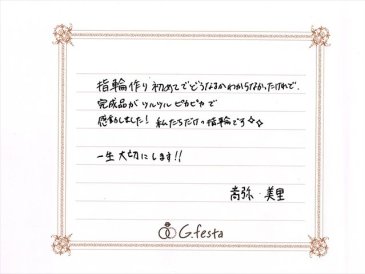 指輪作り初めてでどうなるかわからなかったけれど、
完成品がツルツルピカピカで
感動しました！私たちだけの指輪です☆☆
一生大切にします!!
喬弥・美里
G.festa